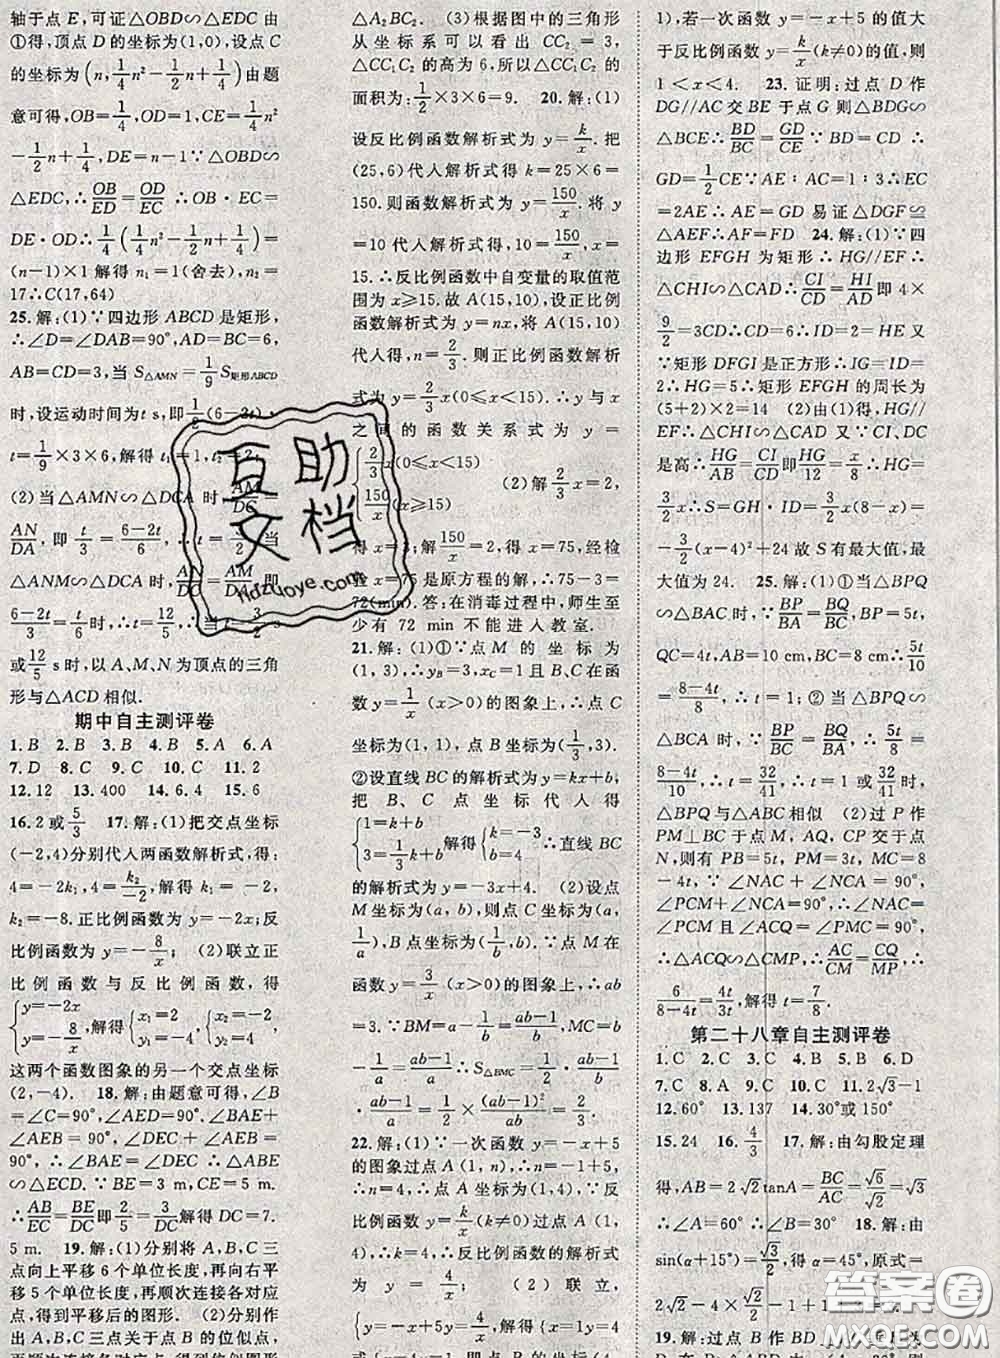 轴于点 E,可证△OBD∽△EDC 由
①得,顶点 D 的坐标为(1,0),设点 C
的坐标为(n,1/4n²-1/2n+1/4)由题
意可得,OB=1/4,OD=1,CE=1/4n²
-1/2n+1/4,DE=n-1∵△OBD∽
△EDC,∴OB/ED=OD/EC∴OB·EC=
DE·OD∴1/4(1/4n²-1/2n+1/4)=
(n-1)×1 解得 n₁=1(舍去),n₂=
17∴C(17,64)
25.解:(1)∵四边形 ABCD 是矩形,
∴∠D=∠DAB=90°,AD=BC=6,
AB=CD=3,当 S△AMN=1/9S矩形ABCD
时,设运动时间为t s,即1/2(6-2t)·
t=1/9×3×6,解得 t₁=1,t₂=2
(2)当△AMN∽△DCA 时 AM/DC=
AN/DA,即 t/3=6-2t/6
△ANM∽△DCA 时,AN/DC=AM/DA即
6-2t/3=t/6时,∴
或12/5 s时,以 A、M、N 为顶点的三角
形与△ACD 相似.
期中自主测评卷
1.B 2.B 3.B 4.B 5.A 6.A
7.D 8.C 9.C 10.C 11.2
12.12 13.400 14.6 15.6
16.2 或5/3 17.解:(1)把交点坐标
(-2,4)分别代人两函数解析式,得:
4=-2k₁,4=k₂/-2.解得 k₁=-2,
k₂=-8.正比例函数为 y=-2x;反
比例函数为y=-8/x; (2)联立正
比例函数与反比例函数,得
{y=-2x y=-8/x,解得{x₁=2 y₁=-4 {x₂=-2 y₂=4
这两个函数图象的另一个交点坐标
(2,-4). 18.解:由题意可得,∠B
=∠C=90°,∠AED=90°,∠BAE+
∠AEB = 90°, ∠DEC + ∠AEB =
90°, ∴ ∠BAE = ∠DEC ∴ △ABE ∽
△ECD. ∵ BE=3 m,CE=5 m.
∴AB/EC=BE/DC∴2/5=3/DC解得 DC=7.
5 m. 19.解:(1)分别将 A,B,C 三
点向上平移 6 个单位长度,再向右平
移 5 个单位长度,再顺次连接各对应
点,得到平移后的图形. (2)分别作
出 A,B,C 三点关于点 B 的位似点,
△A₂BC₂. (3)根据图中的三角形
从坐标系可以看出 CC₂ = 3,
△CC₁C₂ 的高为 6,所以△CC₁C₂ 的
面积为:1/2×3×6=9. 20.解:(1)
设反比例函数解析式为 y=k/x.把
(25,6)代人解析式得 k=25×6=
150.则函数解析式为 y=150/x.将 y
=10 代人解析式得,10=150/x,x=
15.∴反比例函数中自变量的取值范
围为 x⩾15.故 A(15,10),设正比例
函数解析式为 y=nx,将 A(15,10)
代人得,n=2/3.则正比例函数解析
式为y=2/3x(0⩽x<15).∴y 与 x
之间的函数关系式为 y =
{2/3x(0⩽x<15) 150/x(x⩾15) (2)解2/3x=2,
得 x=3;解150/x=2,得 x=75,经检
验 x=75 是原方程的解.75-3=
72(min).答:在消毒过程中,师生至
少有 72 min 不能进入教室.
21.解:(1)①∵点 M 的坐标为
(1,3),∴y_B=3,x_C=1 且 B、C 在函
数 y=1/x(x>0)的图象上,∴点 C
坐标为(1,1),点 B 坐标为(1/3,3).
②设直线 BC 的解析式为y=kx+b,
把 B、C 点坐标代人得
{1=k+b 3=1/3k+b解得{k=-3 b=4∴直线 BC
的解析式为 y=-3x+4. (2)设点
M 坐标为(a,b),则点 C 坐标为(a,
1/a),B点坐标为(1/b,b).∵点 M 在
函数 y=3/x(x>0)的图象上,∴ab
=3.∵BM=a-1/b=ab-1/b,MC=b
-1/a=ab-1/a,∴S△BMC=1/2·ab-1/b
·ab-1/a=1/2×(ab-1)²/ab=2/3.
22.解:(1)∵一次函数 y=-x+5
的图象过点 A(1,n),∴n=-1+5,
∴n=4,∴点 A 坐标为(1,4),∵反
比例函数 y=k/x(k≠0)过点 A(1,
4),∴k=4,∴反比例函数的解析式
为 y = 4/x; (2)联立,
{y=-x+5 y=4/x,解得{x=1 y=4
1),若一次函数 y=-x+5 的值大
于反比例函数y=k/x(k≠0)的值,则
1<x<4. 23.证明:过点 D 作
DG//AC 交 BE 于点 G 则△BDG∽
△BCE∴BD/BC=GD/CE∵BD=CD∴
GD=1/2CE∵AE:AC=1:3∴CE
=2AE∴AE=GD 易证△DGF≌
△AEF∴AF=FD 24.解:(1)∵四
边形 EFGH 为矩形∴HG//EF∴
△CHI∽△CAD∴CI/CD=HI/AD即 4×
9/2=3CD∴CD=6∴ID=2=HE 又
∵矩形 DFGI 是正方形∴IG=ID=
2∴HG=5∴矩形 EFGH 的周长为
(5+2)×2=14 (2)由(1)得,HG//
EF,∴△CHI∽△CAD 又∵CI、CD
是高∴HG/AB=CI/CD即HG/12=x/8∴HG=
3/2x. S矩形EFGH=3/2x(8-x)=
-3/2(x-4)²+24 故 S 有最大值,最
大值为 24. 25.解:(1)①当△BPQ
∽△BAC 时,∵BP/BA=BQ/BC,BP=5t,
QC=4t,AB=10 cm,BC=8 cm,∴5t/10
=8-4t/8,∴t=1;②当△BPQ∽
△BCA 时,∵BP/BC=BQ/BA,∴5t/8=
8-4t/10,∴t=32/41;∴t=1 或32/41时,
△BPQ 与△ABC 相似 (2)过 P 作
PM⊥BC 于点 M,AQ,CP 交于点 N,
则有 PB=5t,PM=3t,MC=8-
4t, ∵ ∠NAC + ∠NCA = 90°,
∠PCM+∠NCA=90°,∴∠NAC=
∠PCM 且∠ACQ=∠PMC=90°,
∴△ACQ∽△CMP,∴AC/CM=CQ/MP,∴
6/8-4t=4t/3t,解得 t=7/8.
第二十八章自主测评卷
1.C 2.C 3.C 4.B 5.B 6.D
7.C 8.A 9.C 10.C 11.2√3-1
12.60° 13.137 14.30°或 150°
15.24 16.4/3 17.解:由勾股定理
得,AB=2√2 tanA=BC/AC=√6/√2=√3
∴∠A=60°∴∠B=30° 18.解:由
sin(α+15°)=√3/2,得 α=45°,原式=
2√2-4×√2/2-1+1+3=3
19.解:过点 B 作 BD
互助
文档
Hdzuoye.com
答案圈
MXQE.COM